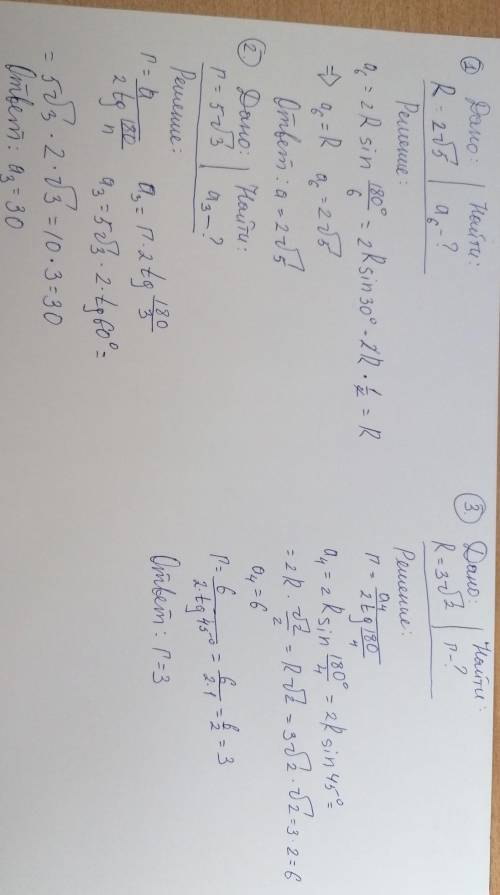 ① Дано: | Найти:
R = 2√5 | a₆ - ?
Решение:
a₆ = 2R sin 180°/6 = 2R sin 30° = 2R · 1/2 = R
⇒ a₆ = R a₆ = 2√5
Ответ: a = 2√5
② Дано: | Найти:
r = 5√3 | a₃ - ?
Решение:
r = a/(2 tg 180/n) a₃ = r · 2 tg 180/3
a₃ = 5√3 · 2 · tg 60° =
= 5√3 · 2 · √3 = 10 · 3 = 30
Ответ: a₃ = 30
③. Дано: | Найти:
R = 3√2 | r - ?
Решение:
r = a₄/(2 tg 180/4)
a₄ = 2R sin 180°/4 = 2R sin 45° =
= 2R · √2/2 = R√2 = 3√2 · √2 = 3 · 2 = 6
a₄ = 6
r = 6/(2 · tg 45°) = 6/(2 · 1) = 6/2 = 3
Ответ: r = 3